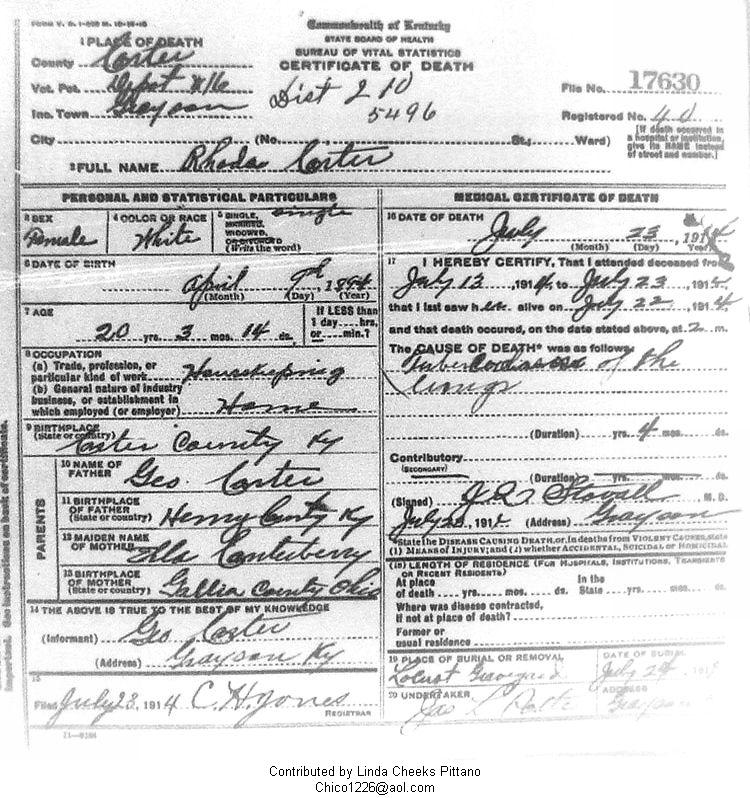 FORM V. S. 1-
Commonwealth of Kentucky
STATE BOARD OF HEALTH
BUREAU OF VITAL STATISTICS
CERTIFICATE OF DEATH
1 PLACE OF DEATH
County Carter
Vot. Pct.
Inc. Town Grayson
City (No. St.; Ward)
Dist 210
5496
File No. 17630
Registered No. 40
[If death occurred in a hospital or institution, give its NAME instead of street and number.]
2 FULL NAME Rhoda Carter
PERSONAL AND STATISTICAL PARTICULARS
3 SEX Female
4 COLOR OR RACE White
5 SINGLE, MARRIED, WIDOWED, OR DIVORCED (Write the word) Single
6 DATE OF BIRTH
April 9th, 1894
(Month) (Day) (Year)
7 AGE
20 yrs. 3 mos. 14 ds.
If LESS than 1 day....hrs. or....min.?
8 OCCUPATION
(a) Trade, profession, or particular kind of work Housekeeping
(b) General nature of industry business, or establishment in which employed (or employer) Home
9 BIRTHPLACE (State or country) Carter County Ky
PARENTS
10 NAME OF FATHER Geo. Carter
11 BIRTHPLACE OF FATHER (State or country) Henry County Ky
12 MAIDEN NAME OF MOTHER Canterberry
13 BIRTHPLACE OF MOTHER (State or country) Gallia County Ohio
14 THE ABOVE IS TRUE TO THE BEST OF MY KNOWLEDGE
(Informant) Geo Carter
(Address) Grayson Ky
15
Filed July 23, 1914 C. H. Jones
REGISTRAR
11-3184
MEDICAL CERTIFICATE OF DEATH
16 DATE OF DEATH
July 23 1914
(Month) (Day) (Year)
17 I HEREBY CERTIFY, That I attended deceased from
July 13, 1914, to July 23 1914,
that I last saw her alive on July 22, 1914
and that death occured, on the date stated above, at 2 m.
The CAUSE OF DEATH* was as follows:
Tuberculosis of the
lungs
(Duration) yrs. 4 mos. ds.
Contributory
(SECONDARY)
(Duration) yrs. mos. ds.
(Signed) Stovall M. D.
July 23, 1914 (Address) Grayson
*State the DISEASE CAUSING DEATH, or, in deaths from VIOLENT CAUSES, state (1) MEANS OF INJURY; and (2) whether ACCIDENTAL, SUICIDAL or HOMICIDAL
(18) LENGTH OF RESIDENCE (FOR HOSPITALS, INSTITUTIONS, TRANSIENTS OR RECENT RESIDENTS)
At place of death yrs. mos. ds. In the State yrs. mos. ds.
Where was disease contracted, If not at place of death?
Former or usual residence
19 PLACE OF BURIAL OR REMOVAL Locust Graveyard
DATE OF BURIAL July 24 1914
20 UNDERTAKER Jas L
ADDRESS Grayson
important. See instructions on back of certificate.
Contributed by Linda Cheeks Pittano
Chico1226@aol.com